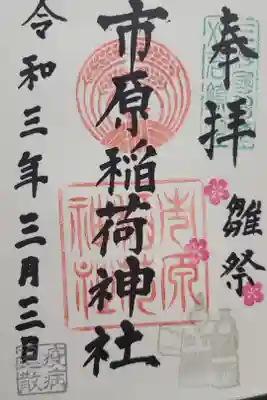 奉拝
雛祭
市原稲荷神社
市原稲荷神社
令和三年三月三日